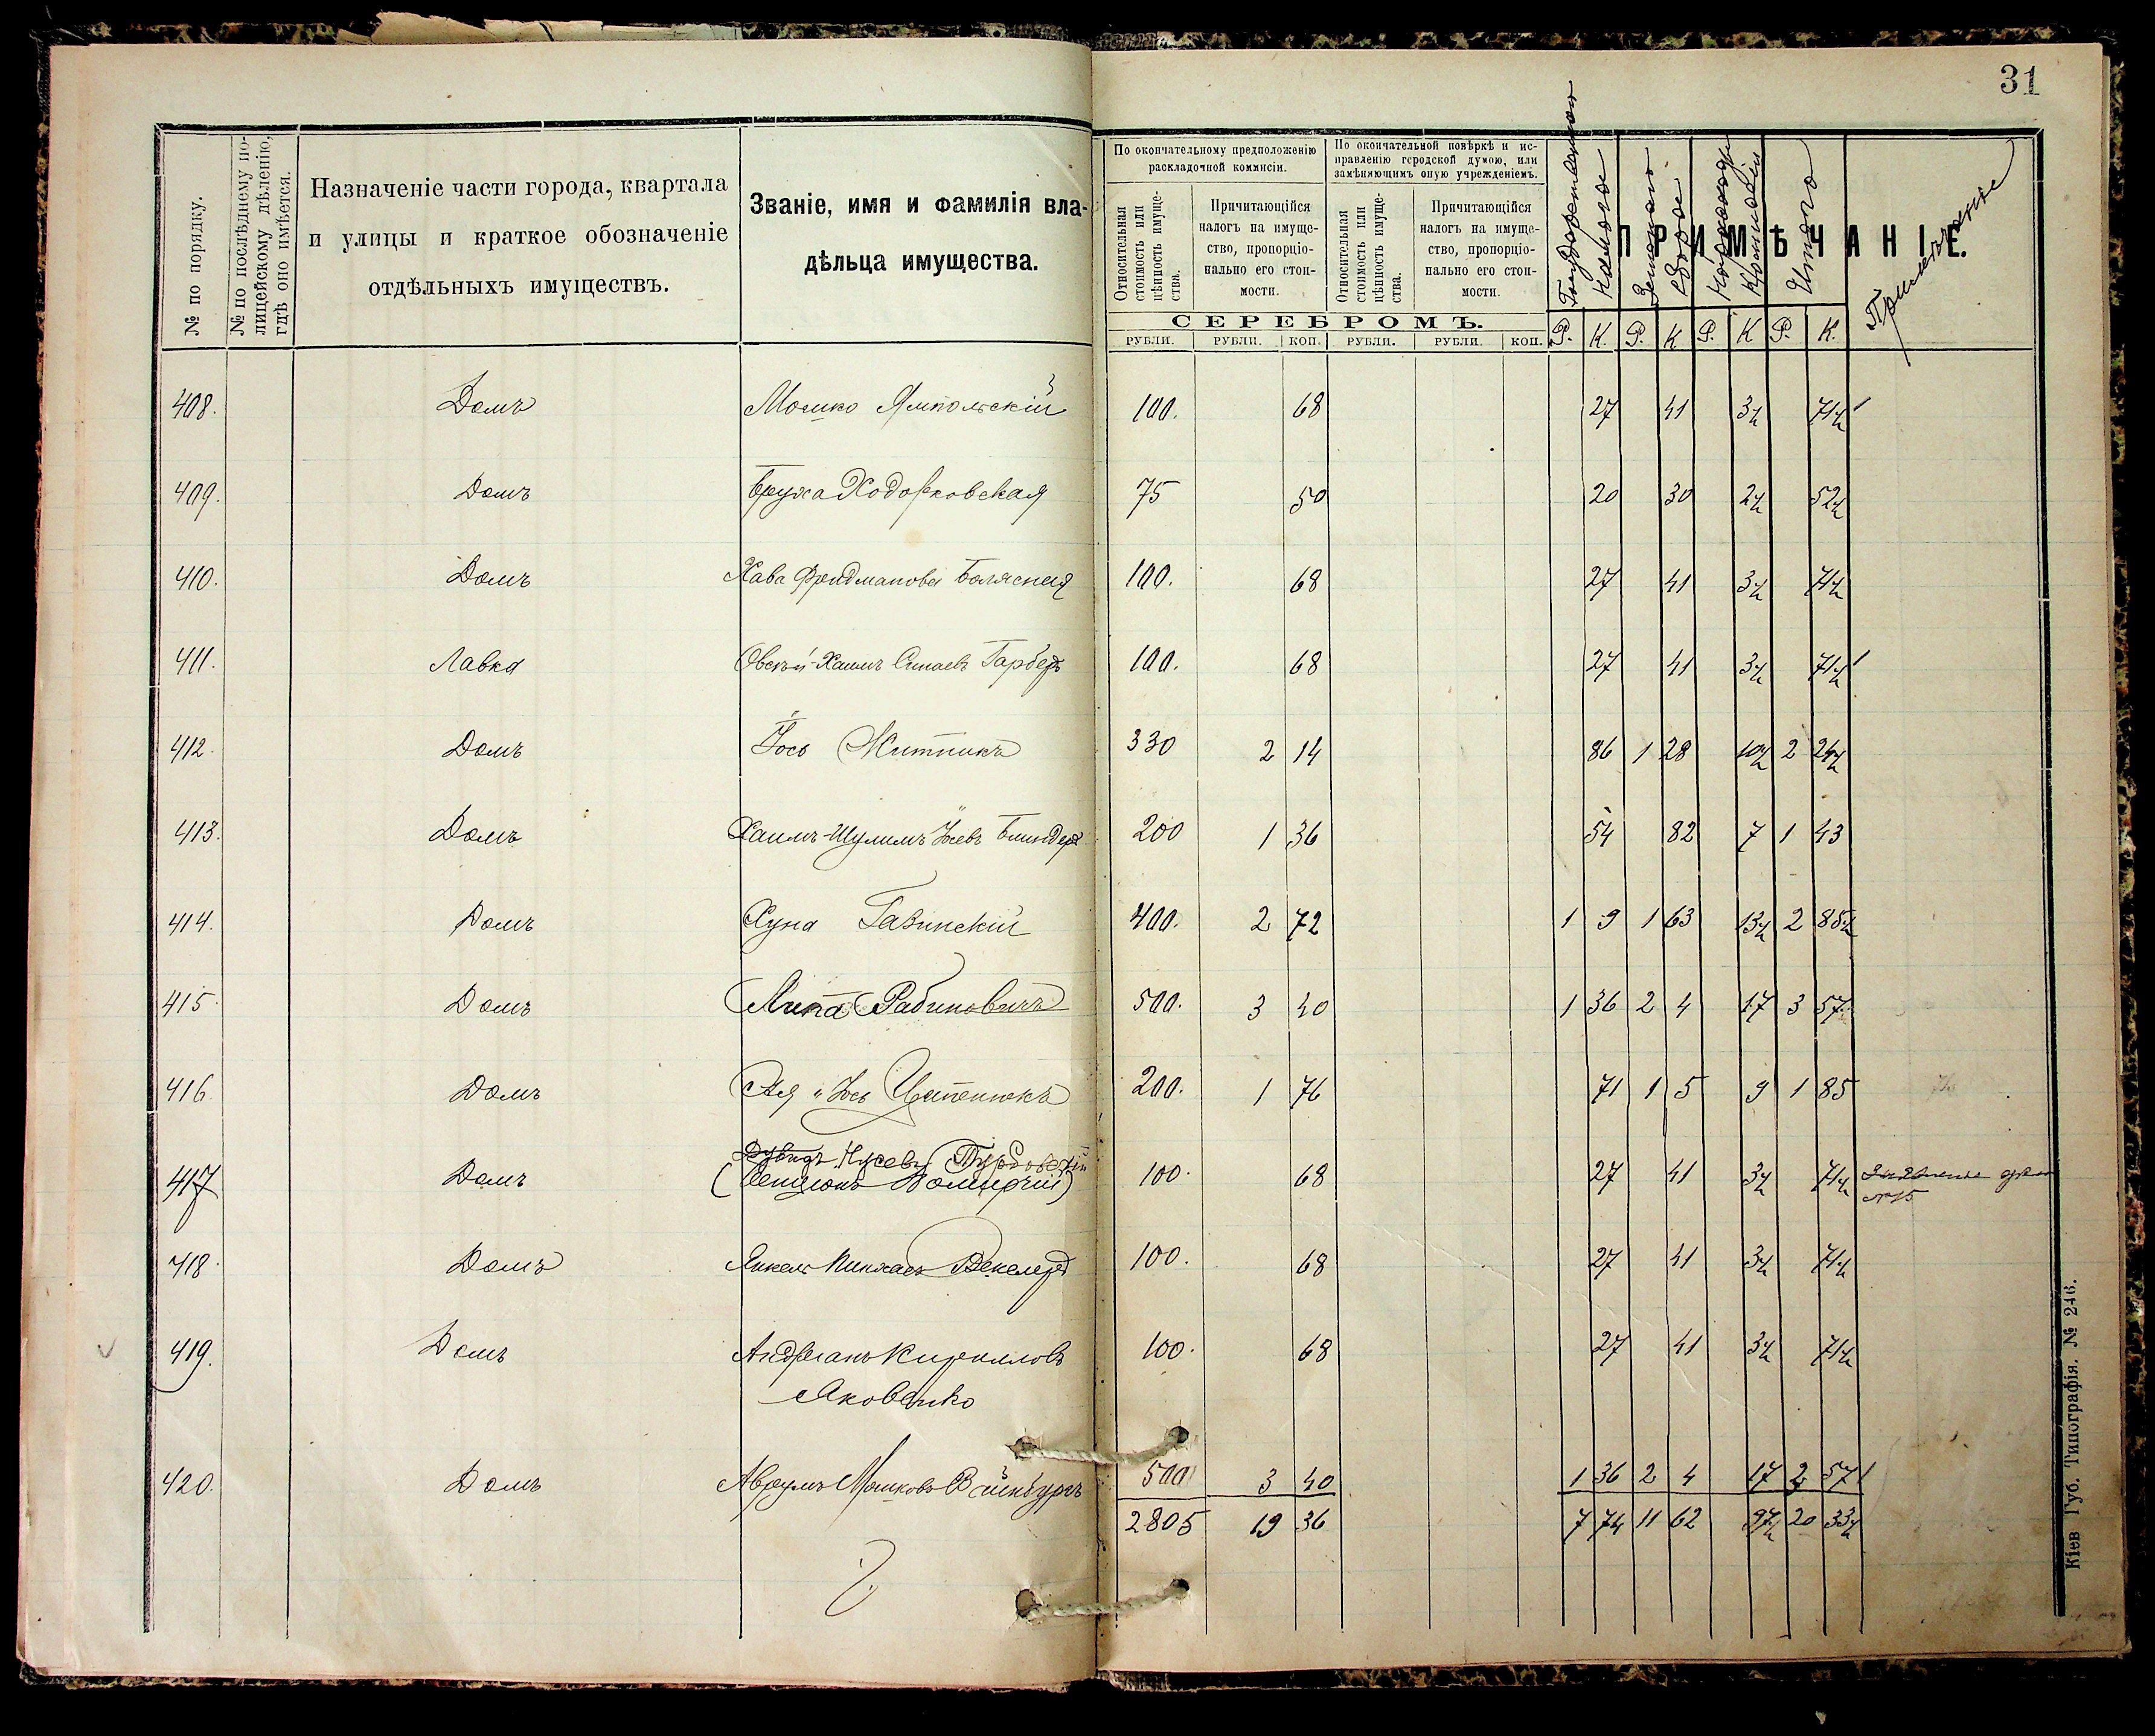 31
№ по порядку.
№ по послѣднему по-
лицейскому дѣленію,
гдѣ оно имѣется.
Назначеніе части города, квартала
и улицы и краткое обозначеніе
отдѣльныхъ имуществъ.
Званіе, имя и фамилія вла-
дѣльца имущества.
По окончательному предположенію
раскладочной комисіи.
По окончательной повѣркѣ и ис-
правленію городской думою, или
замѣняющимъ оную учрежденіемъ.
Относительная
стоимость или
цѣнность имуще-
ства.
Причитающійся
налогъ на имуще-
ство, пропорціо-
нально его стои-
мости.
Относительная
стоимость или
цѣнность имуще-
ства.
Причитающійся
налогъ на имуще-
ство, пропорціо-
нально его стои-
мости.
ПРИМѢЧАНІЕ.
Государственнаго
налога
Земскаго
сбора
Итого
Примѣчаніе
СЕРЕБРОМЪ.
РУБЛИ. РУБЛИ. КОП. РУБЛИ. РУБЛИ. КОП. Р. К. Р. К Р. К Р. К.
408. Домъ Мошко Ямпольскій 100. 68 27 41 3½ 71½
409. Домъ Бруха Ходорковская 75 50 20 30 2½ 52½
410. Домъ Хава Фридманова Балясная 100. 68 27 41 3½ 71½
411. Лавка Овсѣй-Хаимъ Синаевъ Гарберъ 100. 68 27 41 3½ 71½
412. Домъ Іось Житникъ 330 2 14 86 1 28 10½ 2 24½
413. Домъ Хаимъ-Шулимъ Іосевъ Блиндеръ 200 1 36 54 82 7 1 43
414. Домъ Хуна Гавинскій 400. 2 72 1 9 1 63 13½ 2 85½
415. Домъ Липа Рабиновичъ 500. 3 40 1 36 2 4 17 3 57
416. Домъ Ося Іось Цитенюкъ 200. 1 76 71 1 5 9 1 85
417 Домъ Дувидъ Нусевъ 100. 68 27 41 3½ 71½
№ 15
418 Домъ Янкель Пинхасъ Векслеръ 100. 68 27 41 3½ 71½
419. Домъ Андреянъ Кирилловъ 100. 68 27 41 3½ 71½
Яковенко
420. Домъ Аврумъ Мошковъ Вайнбургъ 500 3 40 1 36 2 4 17 3 57
2805 19 36 7 74 11 62 97½ 20 33½
Кіев Губ. Типографія. № 246.